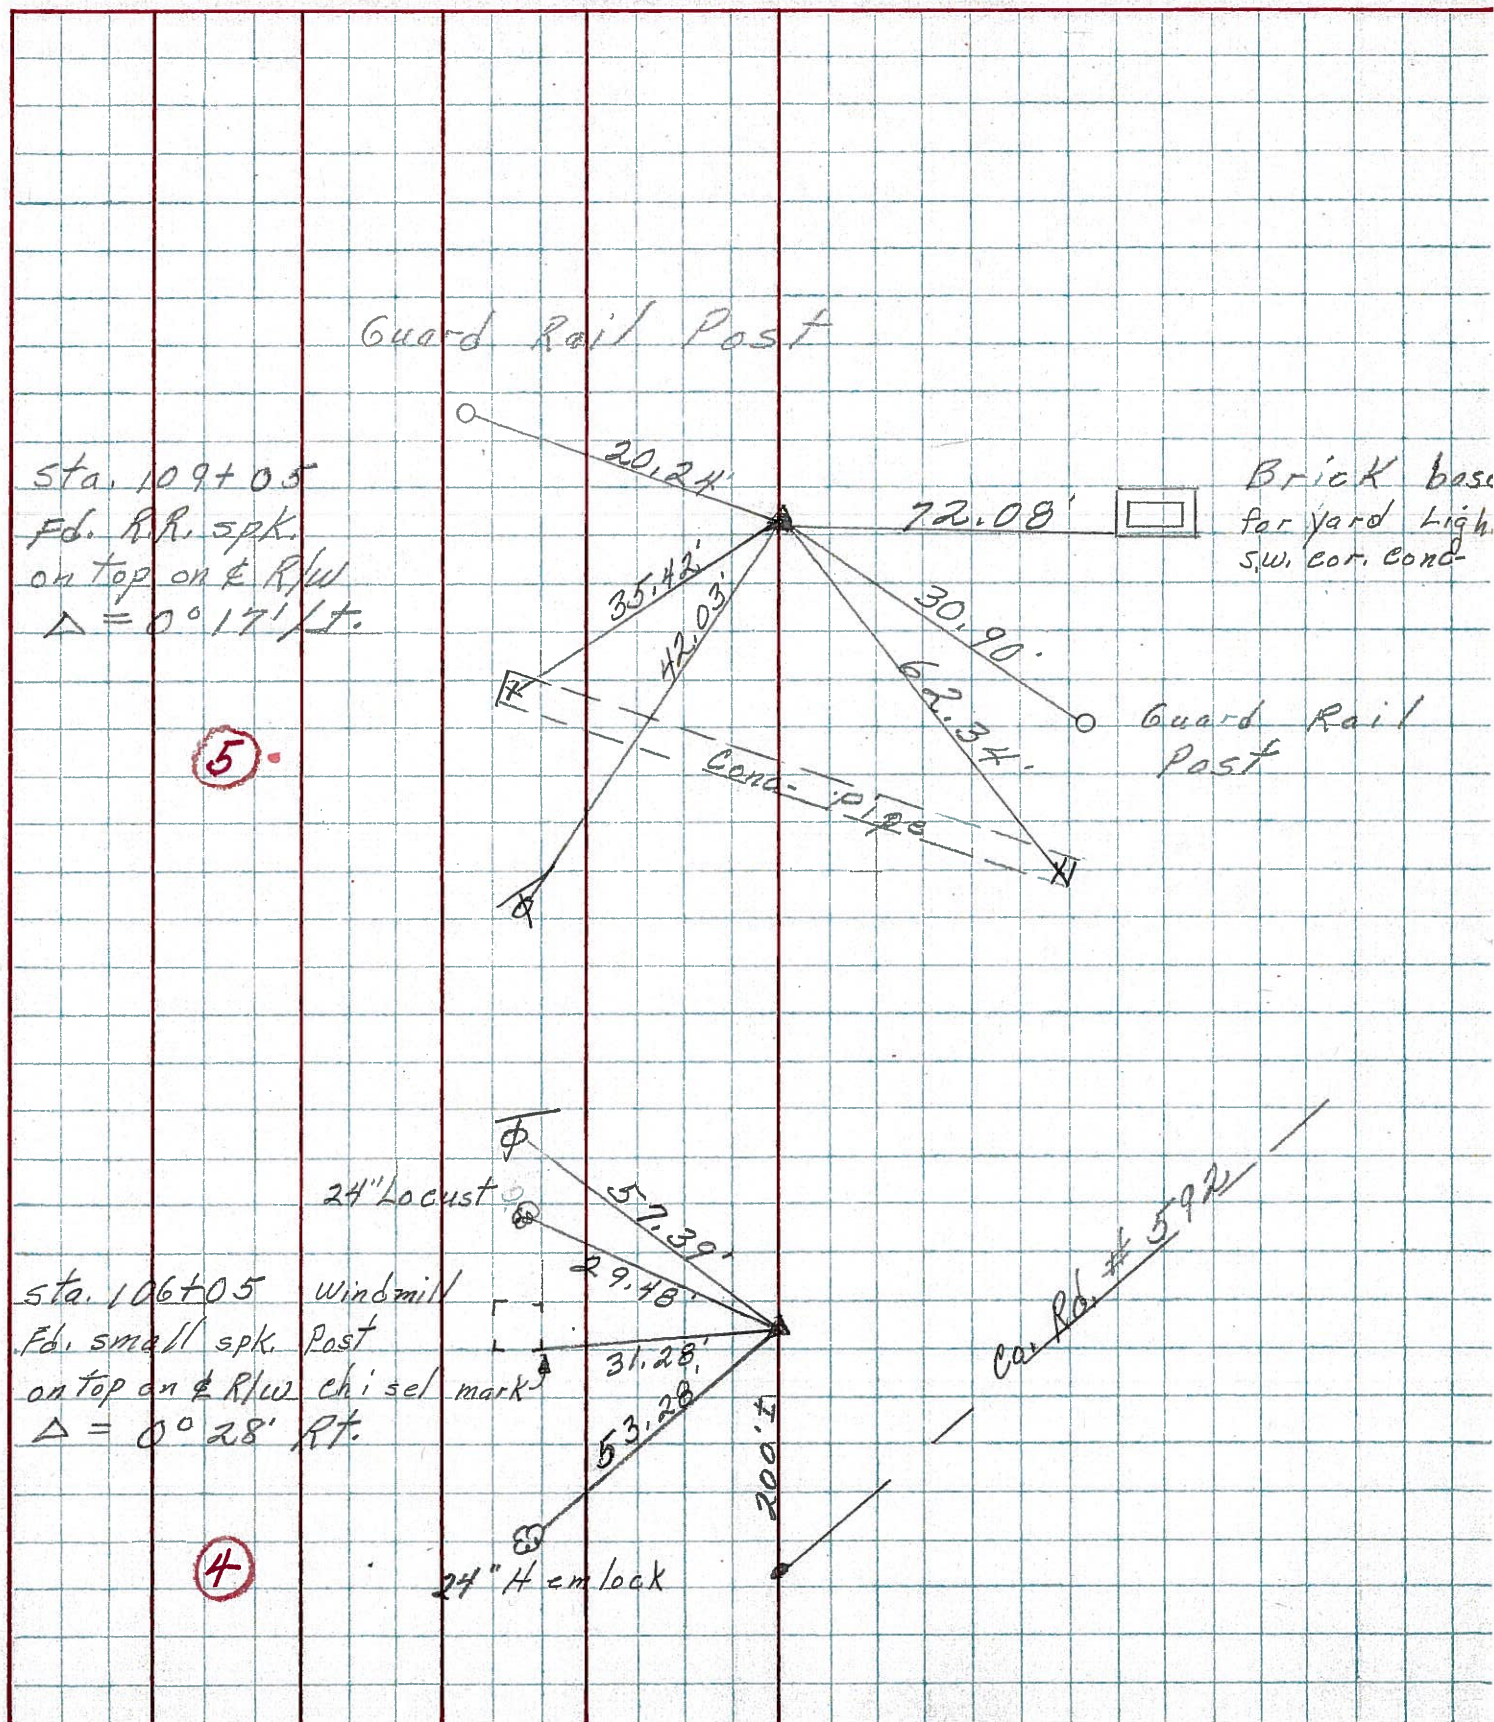 Guard Rail Post
20.24'
Sta. 109+05
Fd. R.R. spk.
on top on ℄ R/W
Δ = 0° 17' Lt.
72.08'
Brick base
for yard Ligh
s.w. cor. conc-
35.42'
42.03'
30.90'
62.34'
Guard Rail
Post
Conc- pipe
5
24" Locust
57.39'
29.48'
Sta. 106+05
Fd. small spk.
on top on ℄ R/W
Δ = 0° 28' Rt.
Windmill
Post
chisel mark
31.28'
53.28'
200'±
Co. Rd. # 592
4
24" Hemlock